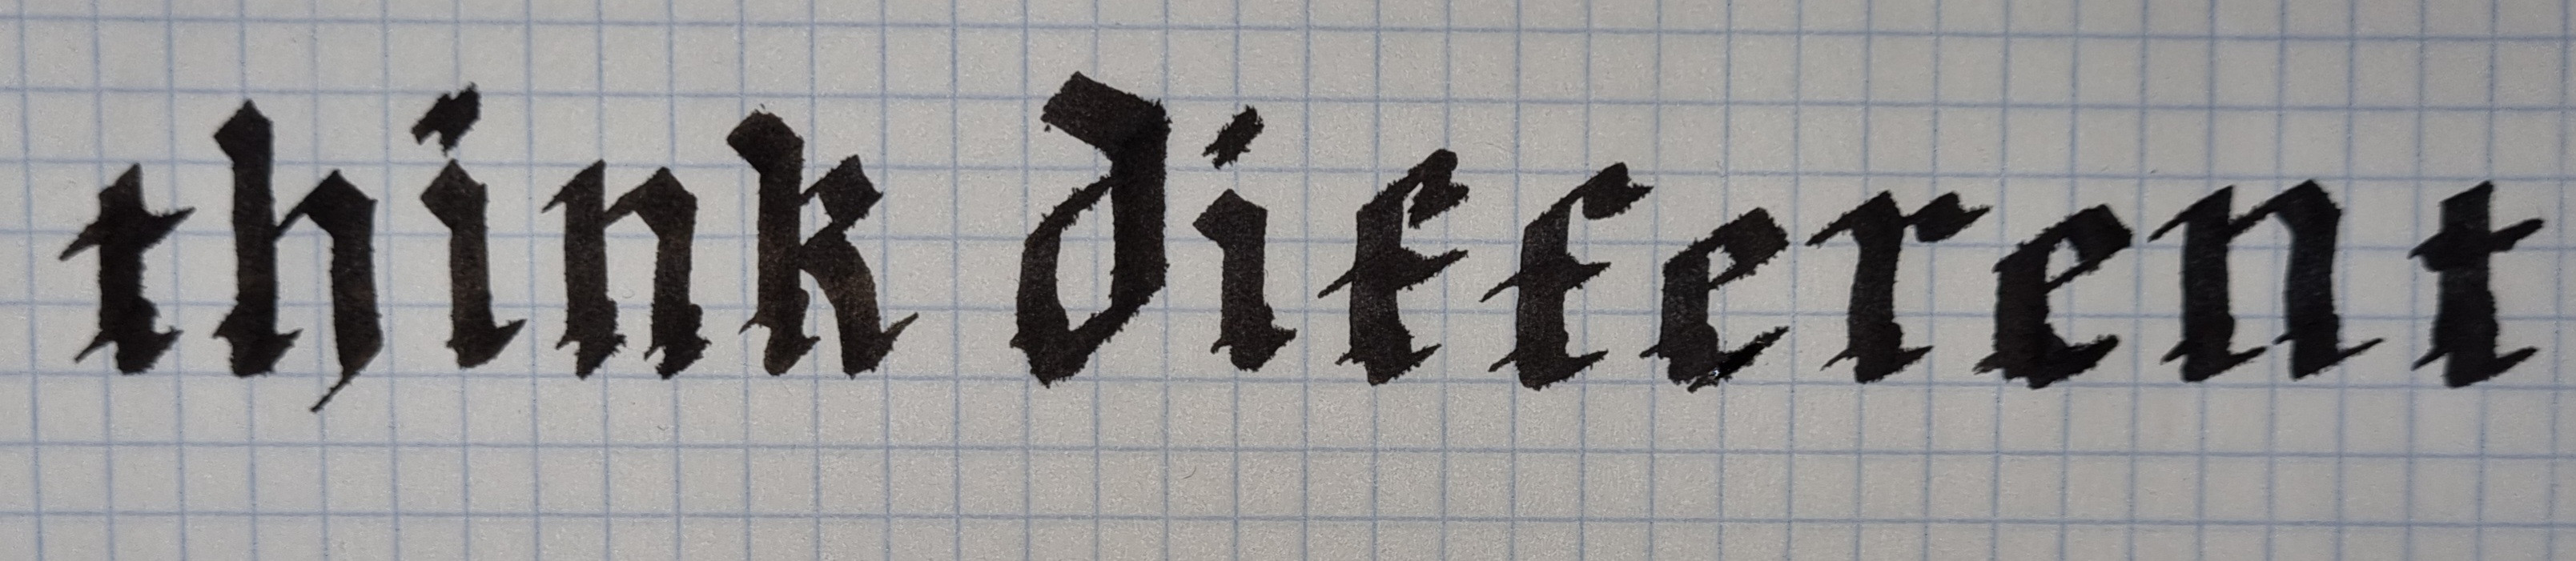 think different